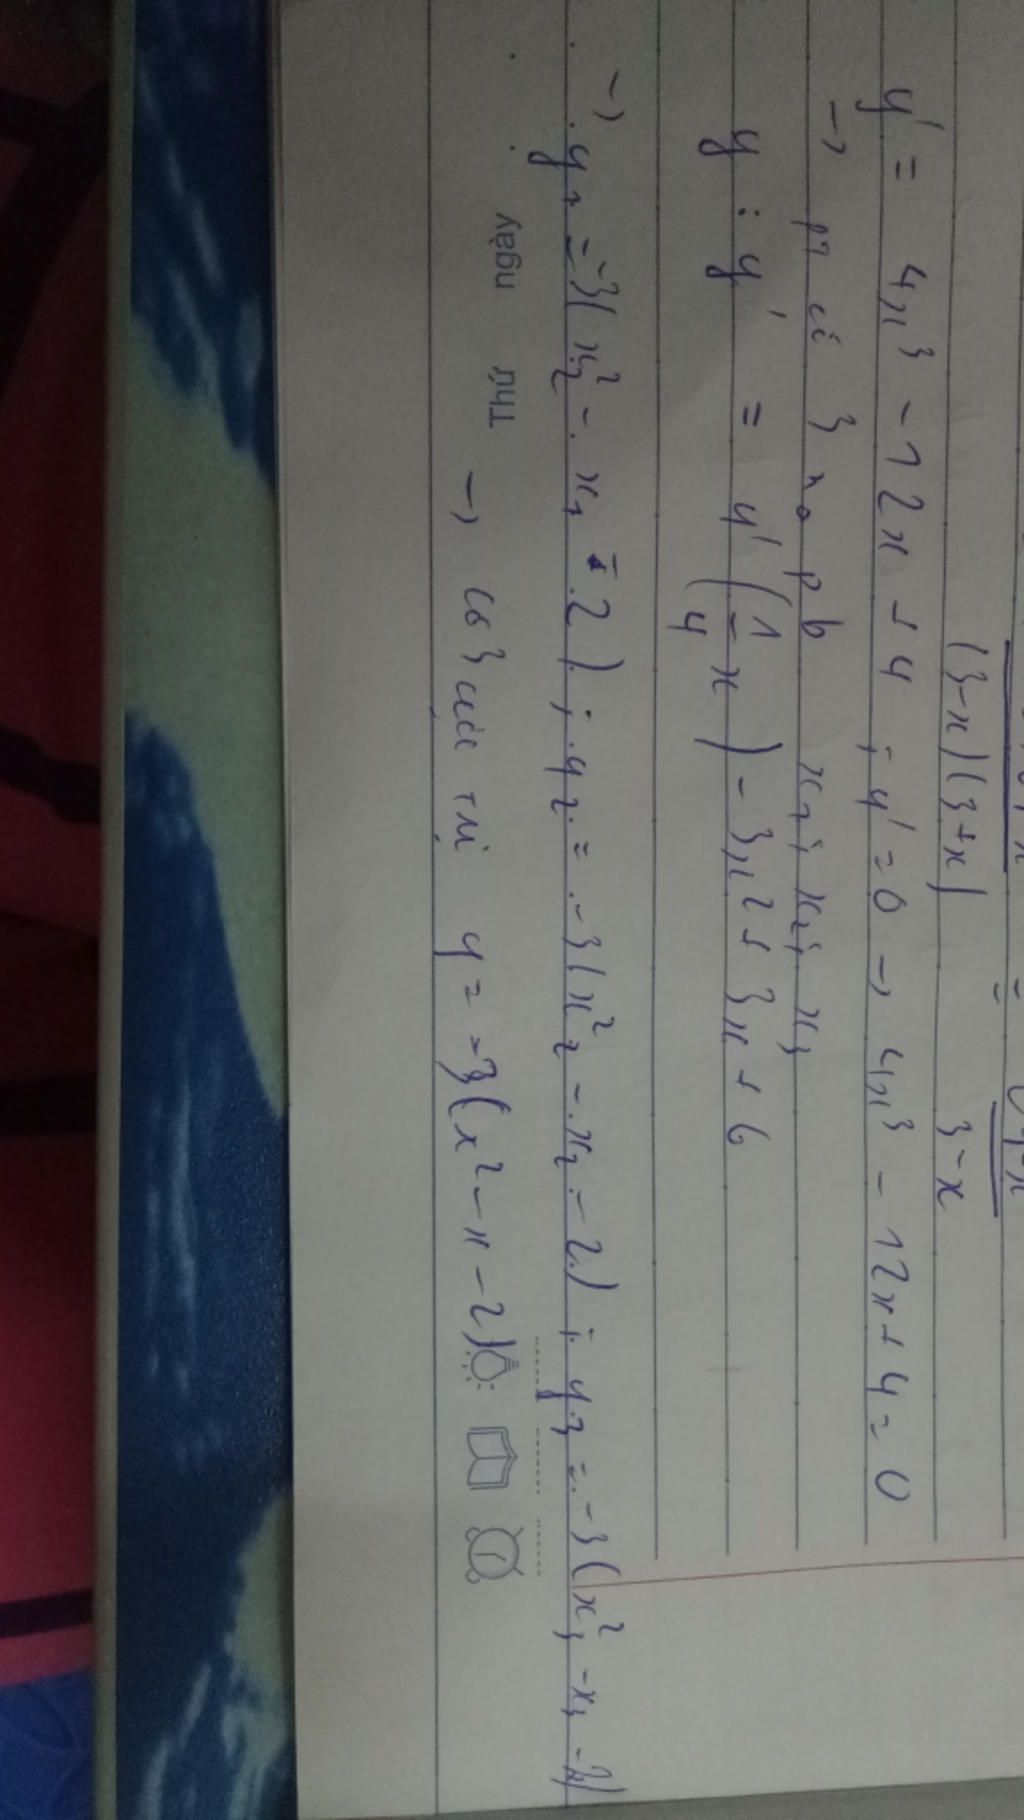 (3-x)(3+x) 3-x
y' = 4x³ - 12x + 4 ; y' = 0 → 4x³ - 12x + 4 = 0
→ pt có 3 no pb x₁; x₂; x₃
y : y' = y' (1/4 x) - 3x² + 3x + 6
→ y₁ = -3(x₁² - x₁ - 2) ; y₂ = -3(x₂² - x₂ - 2) ; y₃ = -3(x₃² - x₃ - 2)
→ Có 3 cực trị y = -3(x² - x - 2)
Thứ ngày